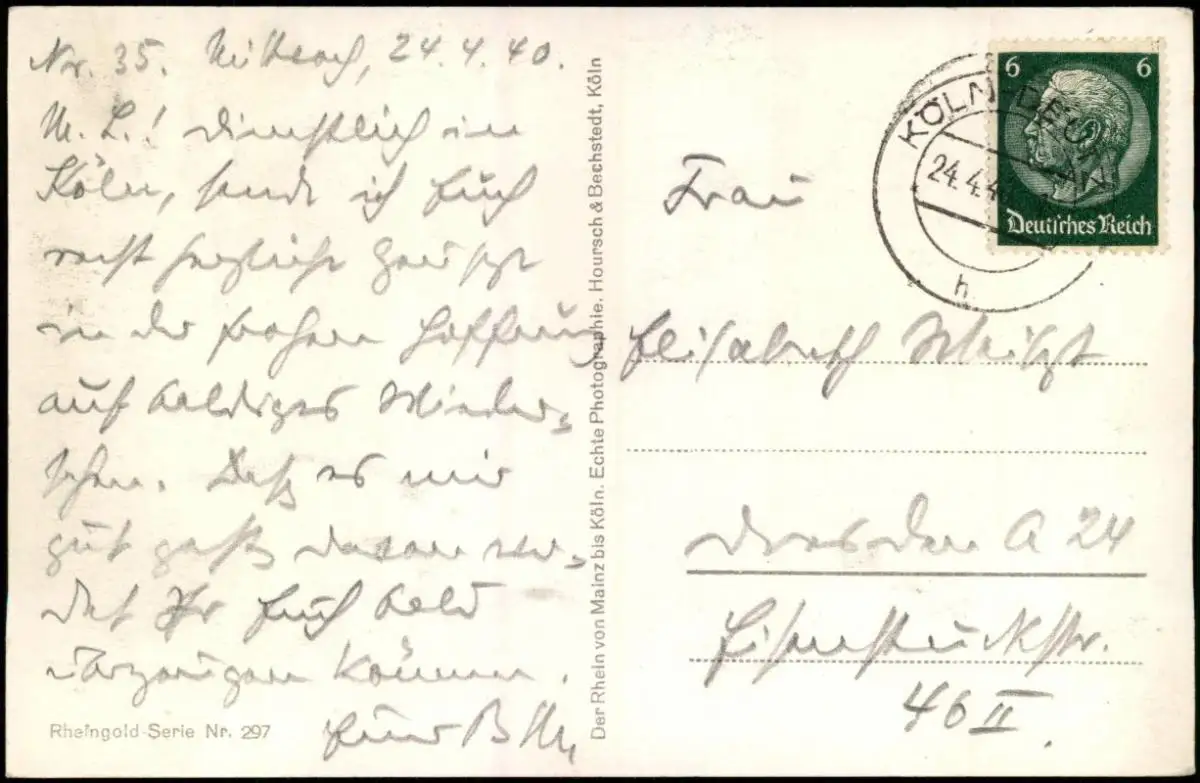 Nr. 35. Mittwoch, 24.4.40.
M. L.! Dienstlich in
Köln, sende ich Euch
recht herzliche Grüße
in der frohen Hoffnung
auf baldiges Wieder-
sehen. Daß es mir
gut geht, davon wer-
det Ihr Euch bald
überzeugen können.
Euer
Rheingold-Serie Nr. 297
Der Rhein von Mainz bis Köln. Echte Photographie. Hoursch & Bechstedt, Köln
6 6
Deutsches Reich
KÖLN-DEUTZ
24.4.4
h
Frau
Elisabeth
Dresden A 24
Eisenstuckstr.
46 II.